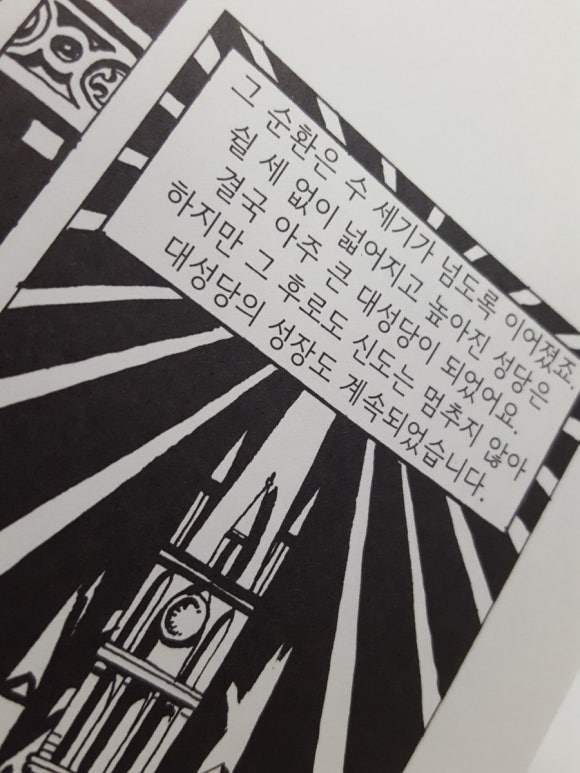 그 순환은 수 세기가 넘도록 이어졌죠.
쉴 세 없이 넓어지고 높아진 성당은
결국 아주 큰 대성당이 되었어요.
하지만 그 후로도 신도는 멈추지 않아
대성당의 성장도 계속되었습니다.